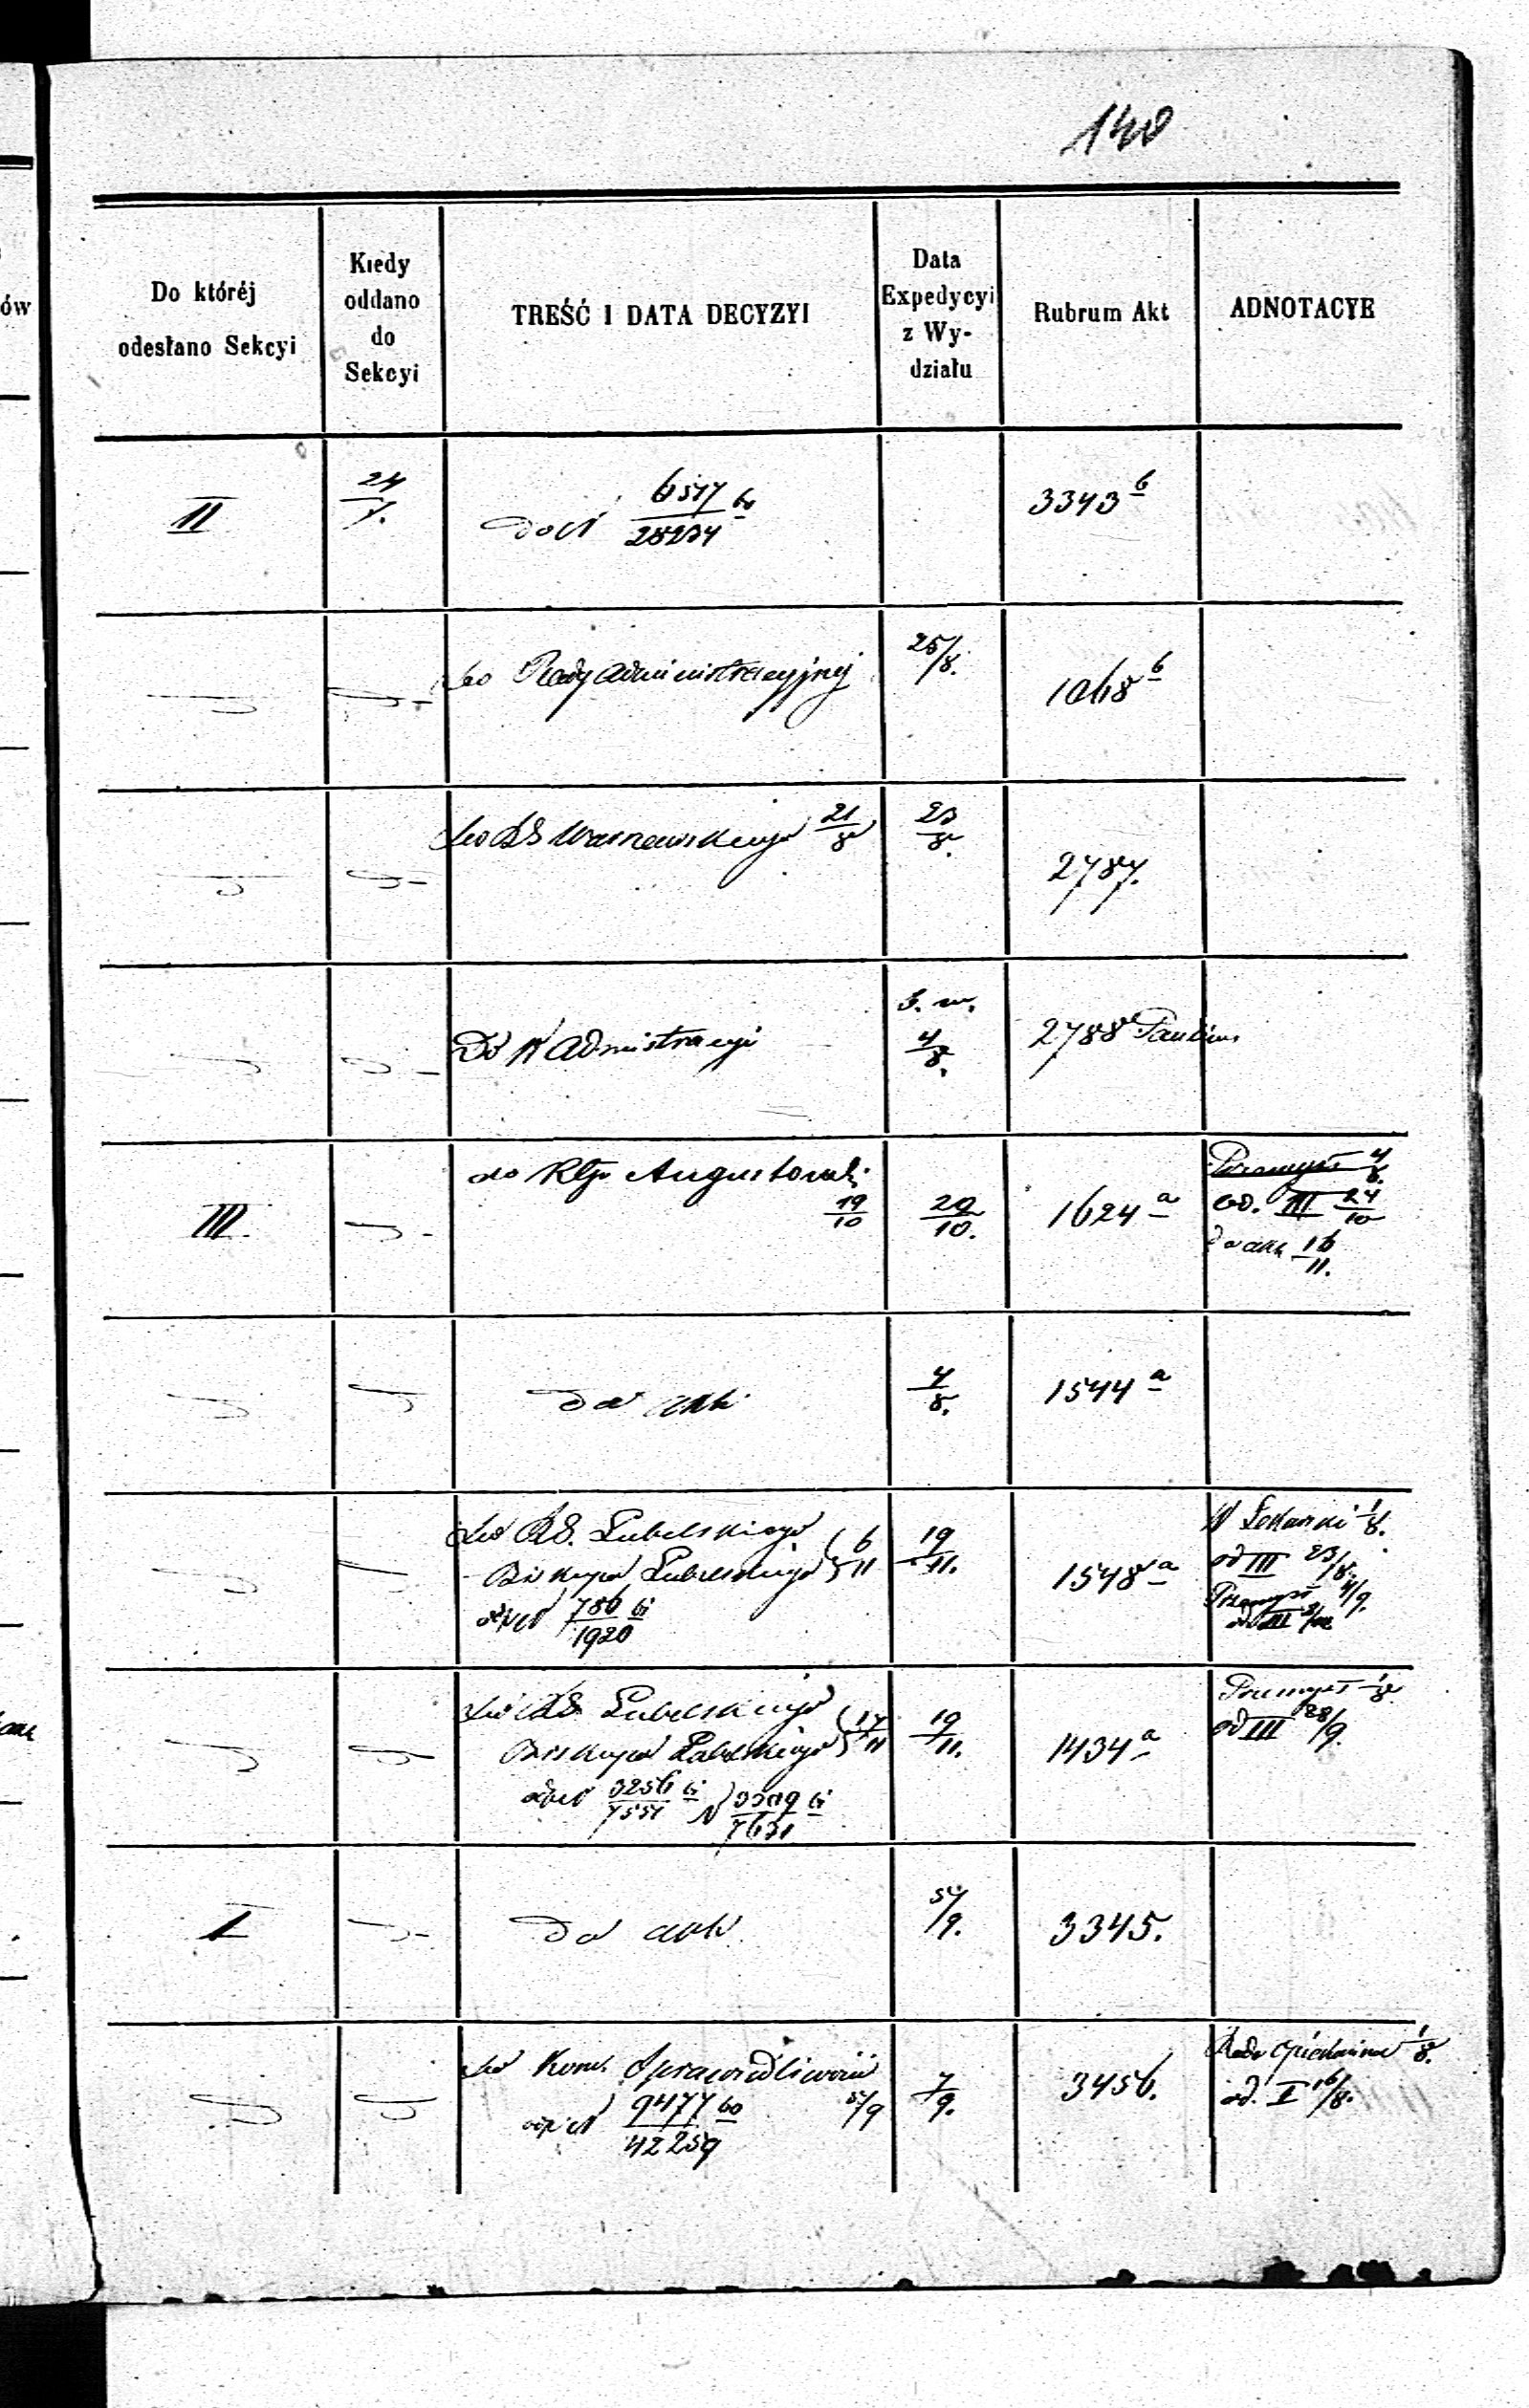 140
Do któréj
odesłano Sekcyi
Kiedy
oddano
do
Sekcyi
TREŚĆ I DATA DECYZYI
Data
Expedycyi
z Wy-
działu
Rubrum Akt
ADNOTACYE
ów
II
24/7.
do N 6577/28234
3343 b
do Rady Administracyjnej
25/8.
1068 b
Do RG Warszawskiego 21/8
23/8.
2787.
Do Administracyi
4/8.
2788
III
do Augustowski
19/10
20/10.
1624 a
Przemysł 4/8.
od. III 24/10
do akt 16/11.
do akt
4/8.
1544 a
Do RG. Lubelskiego
Biskupa Lubelskiego 6/11
786/1920
19/11.
1548 a
od III 23/8.
Przemysł 4/9.
Do RG Lubelskiego
Biskupa Lubelskiego 17/11
3256/7551 N 3309/7631
19/11.
1434 a
Przemysł 1/8.
od III 28/9.
I
do akt
5/9.
3345.
Do Kom. Sprawiedliwości
9477/42259 5/9
7/9.
3456.
Rada Opiekuńcza 1/8.
od. I 16/8.